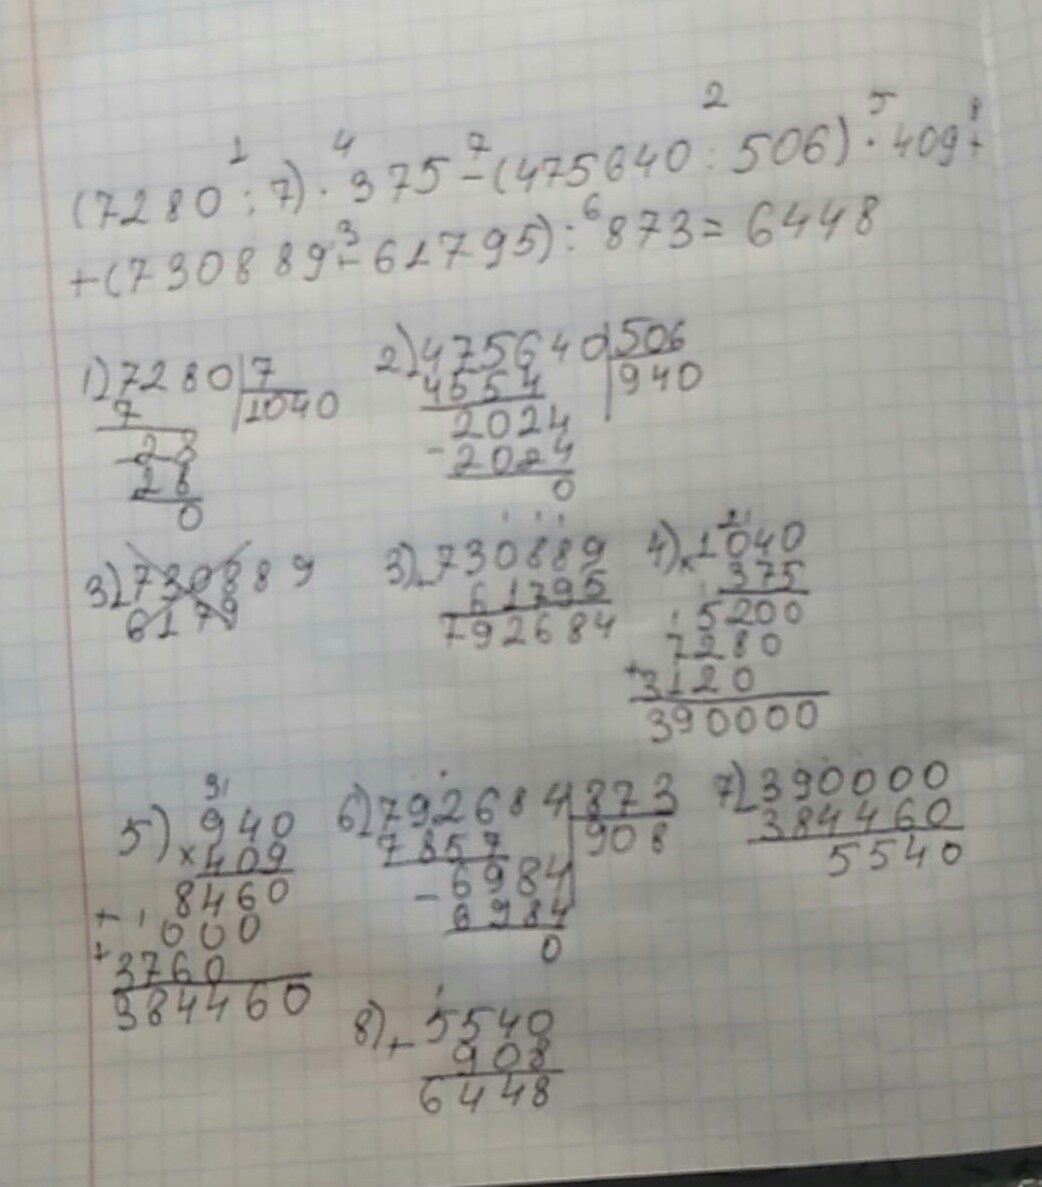 (7280 : 7) · 375 - (475640 : 506) · 409 +
+ (730889 + 61795) : 873 = 6448
1) 7280 | 7
7 | 1040
- 28
28
0
2) 475640 | 506
4554 | 940
2024
- 2024
0
3) 730889
6179
3) 730889
61795
792684
4) 1040
× 375
5200
7280
+ 3120
390000
5) 940
× 409
8460
+ 000
+ 3760
384460
6) 792684 | 873
7857 | 908
- 6984
6984
0
7) 390000
384460
5540
8) + 5540
908
6448